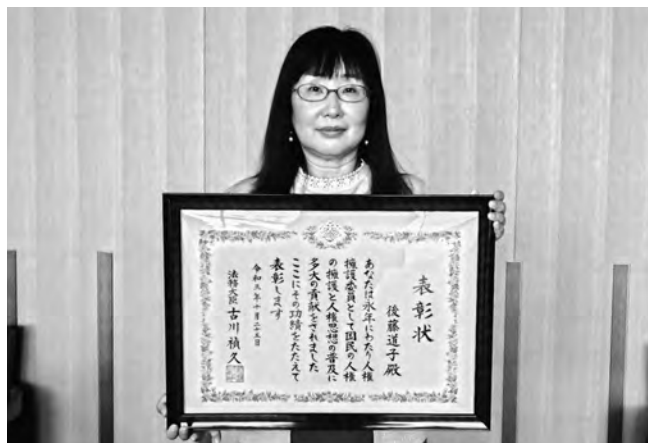 表彰状
後藤道子殿
あなたは永年にわたり人権
擁護委員として国民の人権
の擁護と人権思想の普及に
多大の貢献をされました
ここにその功績をたたえて
表彰します
令和三年十月二十五日
法務大臣 古川禎久